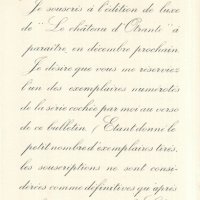 Je souscris à l'édition de luxe
de "Le château d'Otrante" à
paraître, en décembre prochain.
Je désire que vous me réserviez
l'un des exemplaires numérotés
de la série cochée par moi au verso
de ce bulletin. (Etant donné le
petit nombre d'exemplaires tirés,
les souscriptions ne sont consi-
dérées comme définitives qu'après